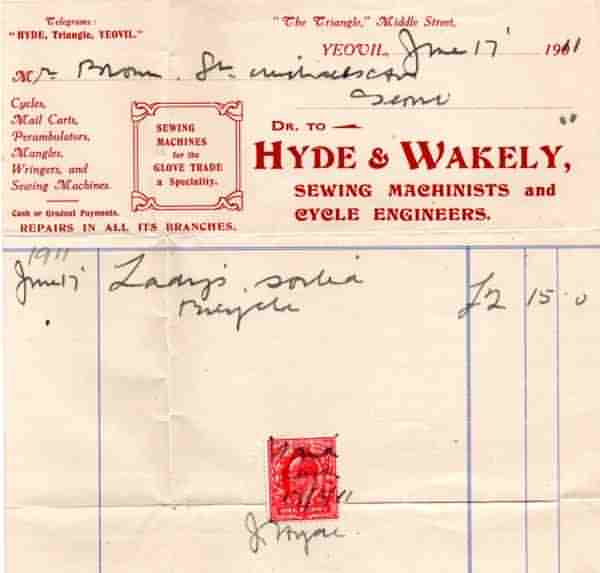 Telegrams:
"HYDE, Triangle, YEOVIL."
"The Triangle," Middle Street,
YEOVIL, June 17 1911
Mr Brown. St. Michaels
Yeovil
Cycles,
Mail Carts,
Perambulators,
Mangles,
Wringers, and
Sewing Machines.
Cash or Gradual Payments.
REPAIRS IN ALL ITS BRANCHES.
SEWING
MACHINES
for the
GLOVE TRADE
a Speciality.
DR. TO
HYDE & WAKELY,
SEWING MACHINISTS and
CYCLE ENGINEERS.
1911
June 17 Lady's
Bicycle £2 15 0
Paid
J Hyde